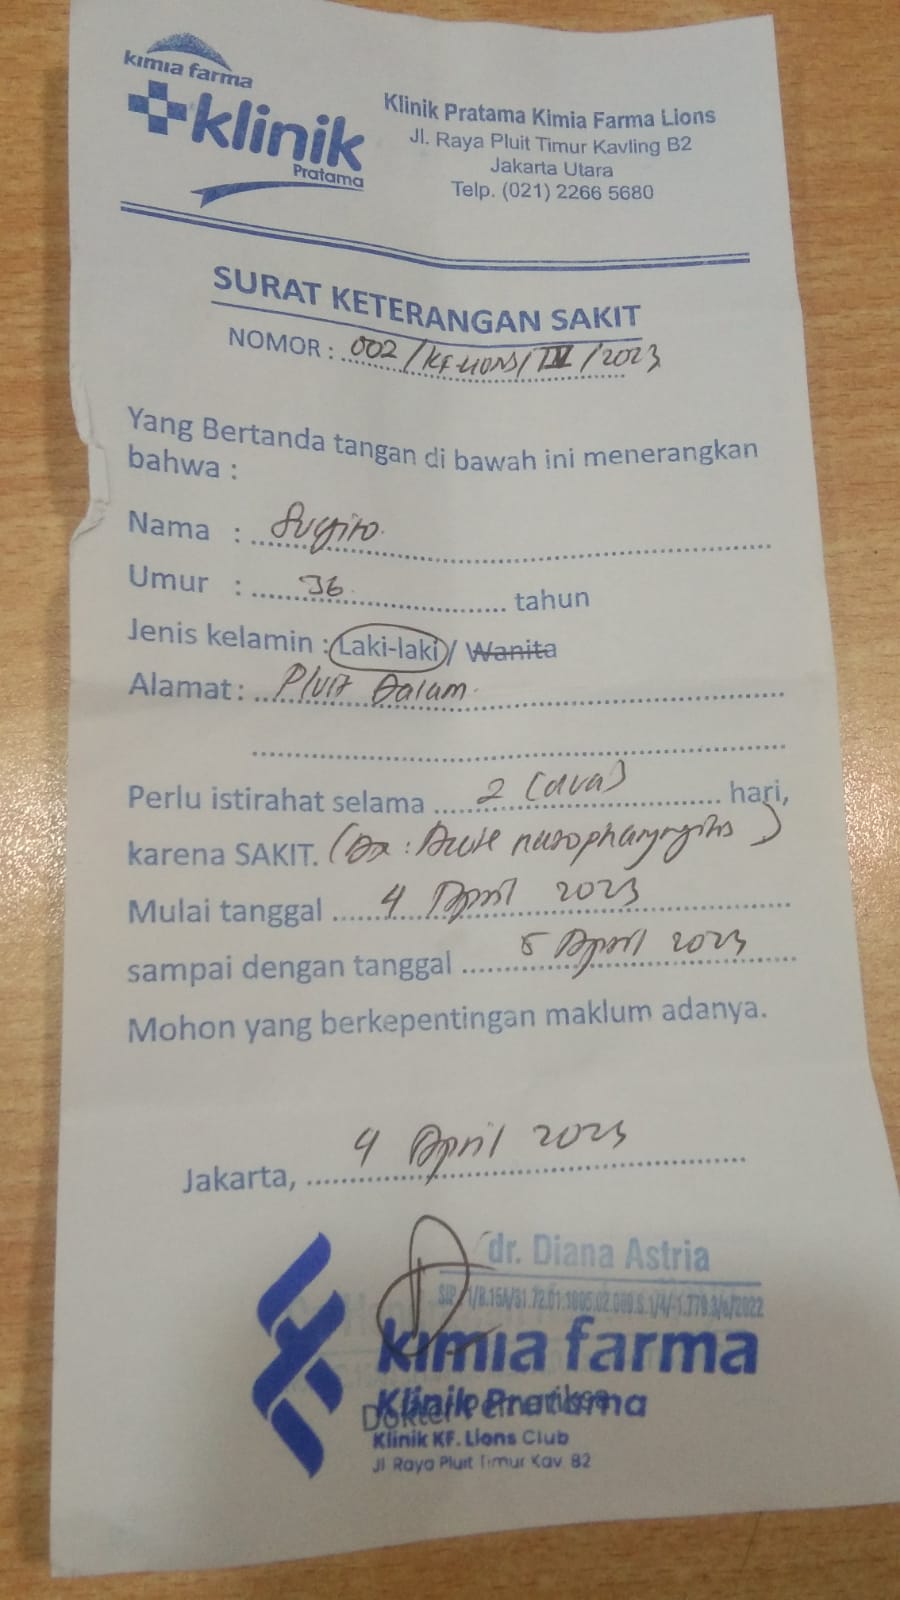 kimia farma
klinik
Pratama
Klinik Pratama Kimia Farma Lions
Jl. Raya Pluit Timur Kavling B2
Jakarta Utara
Telp. (021) 2266 5680
SURAT KETERANGAN SAKIT
NOMOR : 002/KF-LIONS/IV/2023
Yang Bertanda tangan di bawah ini menerangkan
bahwa :
Nama : Sugiro
Umur : 36 tahun
Jenis kelamin : Laki-laki / Wanita
Alamat : Pluit Dalam
Perlu istirahat selama 2 (dua) hari,
karena SAKIT. (Dx : Acute nasopharyngitis)
Mulai tanggal 4 April 2023
sampai dengan tanggal 5 April 2023
Mohon yang berkepentingan maklum adanya.
Jakarta, 4 April 2023
dr. Diana Astria
kimia farma
Klinik Pratama
Dokter Pemeriksa
Klinik KF. Lions Club
Jl Raya Pluit Timur Kav. B2